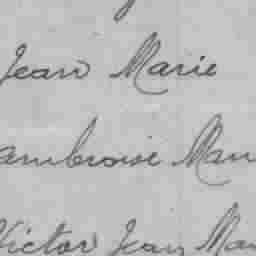 Jean Marie
ambroise Mari
Victor Jean Mar